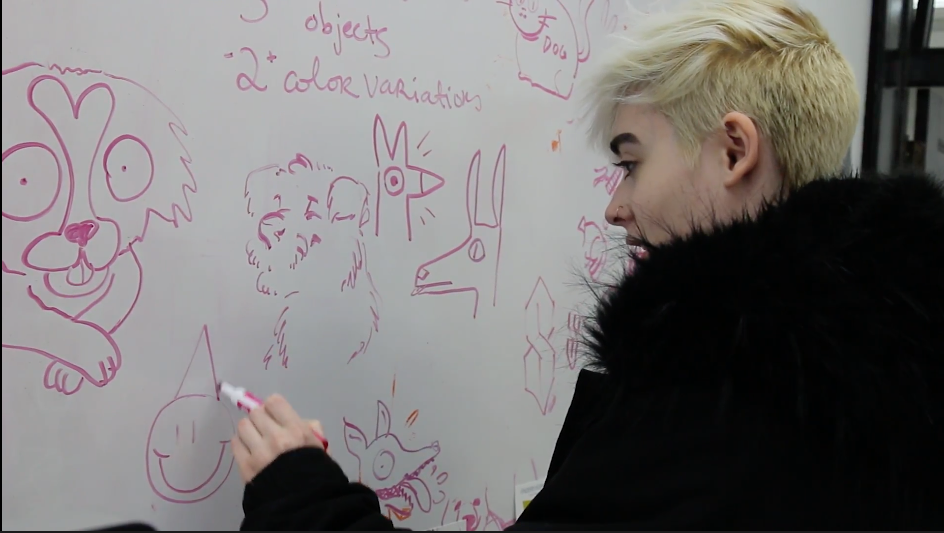 objects
2 color variations
DOG